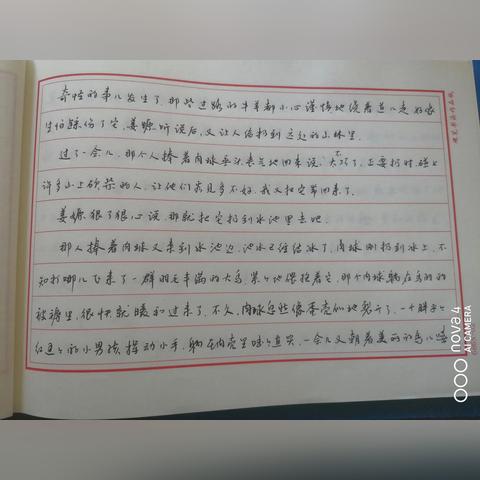 奇怪的事儿发生了，那些过路的牛羊都小心谨慎地绕着道儿走，好象
生怕踩伤了它，姜嫄听说后，又让人给扔到远处的山林里。
过了一会儿，那个人捧着肉球垂头丧气地回来说：不大巧了，正要扔时，碰上
许多山上砍柴的人，让他们看见多不好，我又把它带回来了。
姜嫄狠了狠心说，那就把它扔到水池里去吧。
那人捧着肉球又来到水池边，池水已经结冰了，肉球刚扔到冰上，不
知打哪儿飞来了一群羽毛丰满的大鸟，紧紧地偎拉着它，那个肉球躺在鸟的的
被褥里，很快就暖和过来了，不久，肉球忽然像蛋壳似地裂开了，一个胖乎乎
红且々的小男孩，挥动小手，躺在肉壳里哇々直哭，一会儿又朝着美丽的鸟儿
硬笔书法作品纸
nova 4
AI CAMERA